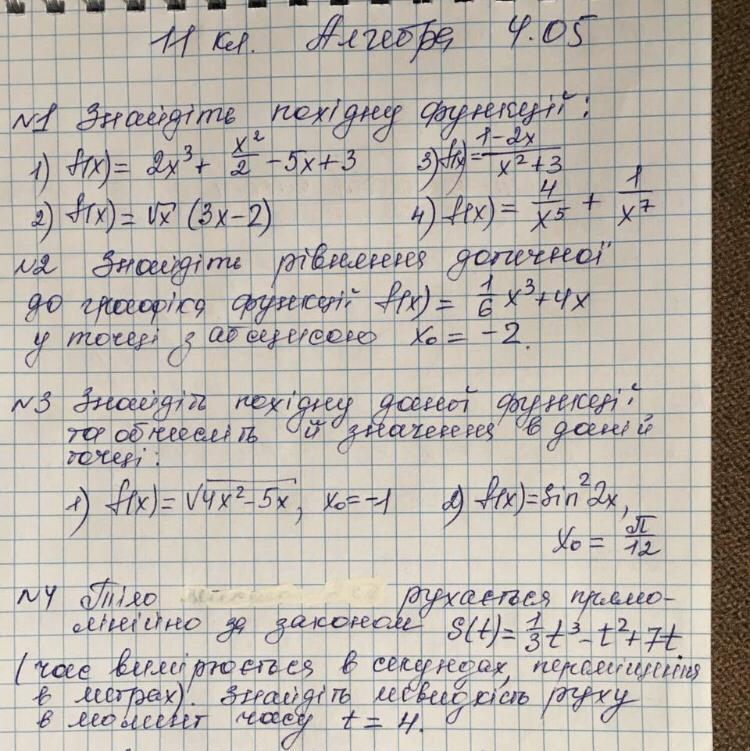 11 кл. Алгебра 4.05
№1 Знайдіть похідну функції:
1) f(x) = 2x³ + x²/2 - 5x + 3 3) f(x) = (1-2x)/(x²+3)
2) f(x) = √x (3x-2) 4) f(x) = 4/x⁵ + 1/x⁷
№2 Знайдіть рівняння дотичної
до графіка функції f(x) = 1/6 x³ + 4x
у точці з абсцисою x₀ = -2.
№3 Знайдіть похідну даної функції
та обчисліть її значення в даній
точці:
1) f(x) = √(4x²-5x), x₀ = -1 2) f(x) = sin²2x,
x₀ = π/12
№4 Тіло рухається прямо-
лінійно за законом S(t) = 1/3 t³ - t² + 7t
(час вимірюється в секундах, переміщення
в метрах). Знайдіть швидкість руху
в момент часу t = 4.